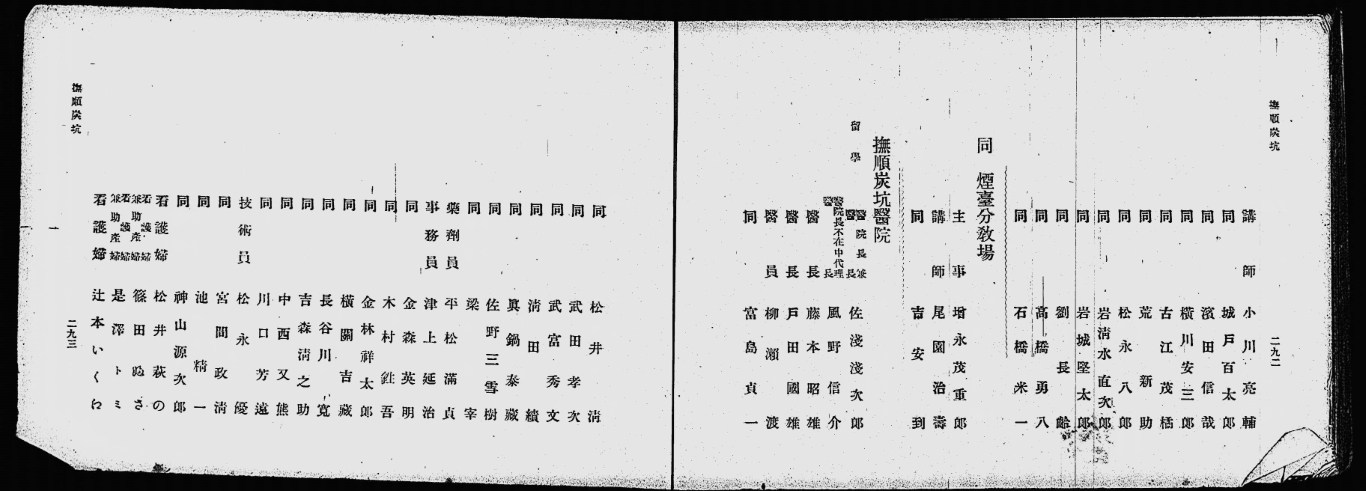 撫順炭坑
二九二
講師 小川亮輔
同 城戸百太郎
同 濱田信哉
同 横川安三郎
同 古江茂栝
同 荒新助
同 松永八郎
同 岩清水直次郎
同 岩城堅太郎
同 劉長齡
同 高橋勇八
同 石橋米一
同 煙臺分敎場
主事 增永茂重郎
講師 尾園治壽
同 吉安到
撫順炭坑醫院
留學
醫院長兼醫長 佐淺淺次郎
醫院長不在中代理醫長 風野信介
醫長 藤本昭雄
醫長 戸田國雄
醫員 柳瀬渡
同 富島貞一
同 松井清
同 武田孝次
同 武富秀文
同 淸田績
同 眞鍋泰藏
同 佐野三雪樹
同 梁宰
藥劑員 平松滿貞
事務員 津上延治
同 金森英明
同 木村鉎吾
同 金林祥太郎
同 横關吉藏
同 長谷川寬
同 吉森淸之助
同 中西又熊
同 川口芳遠
技術員 松永優
同 宮間政淸
同 池精一
同 神山源次郎
看護婦 松井萩の
看護婦兼助產婦 篠田ぬさ
看護婦兼助產婦 是澤トミ
看護婦 辻本いくゑ
撫順炭坑
二九三